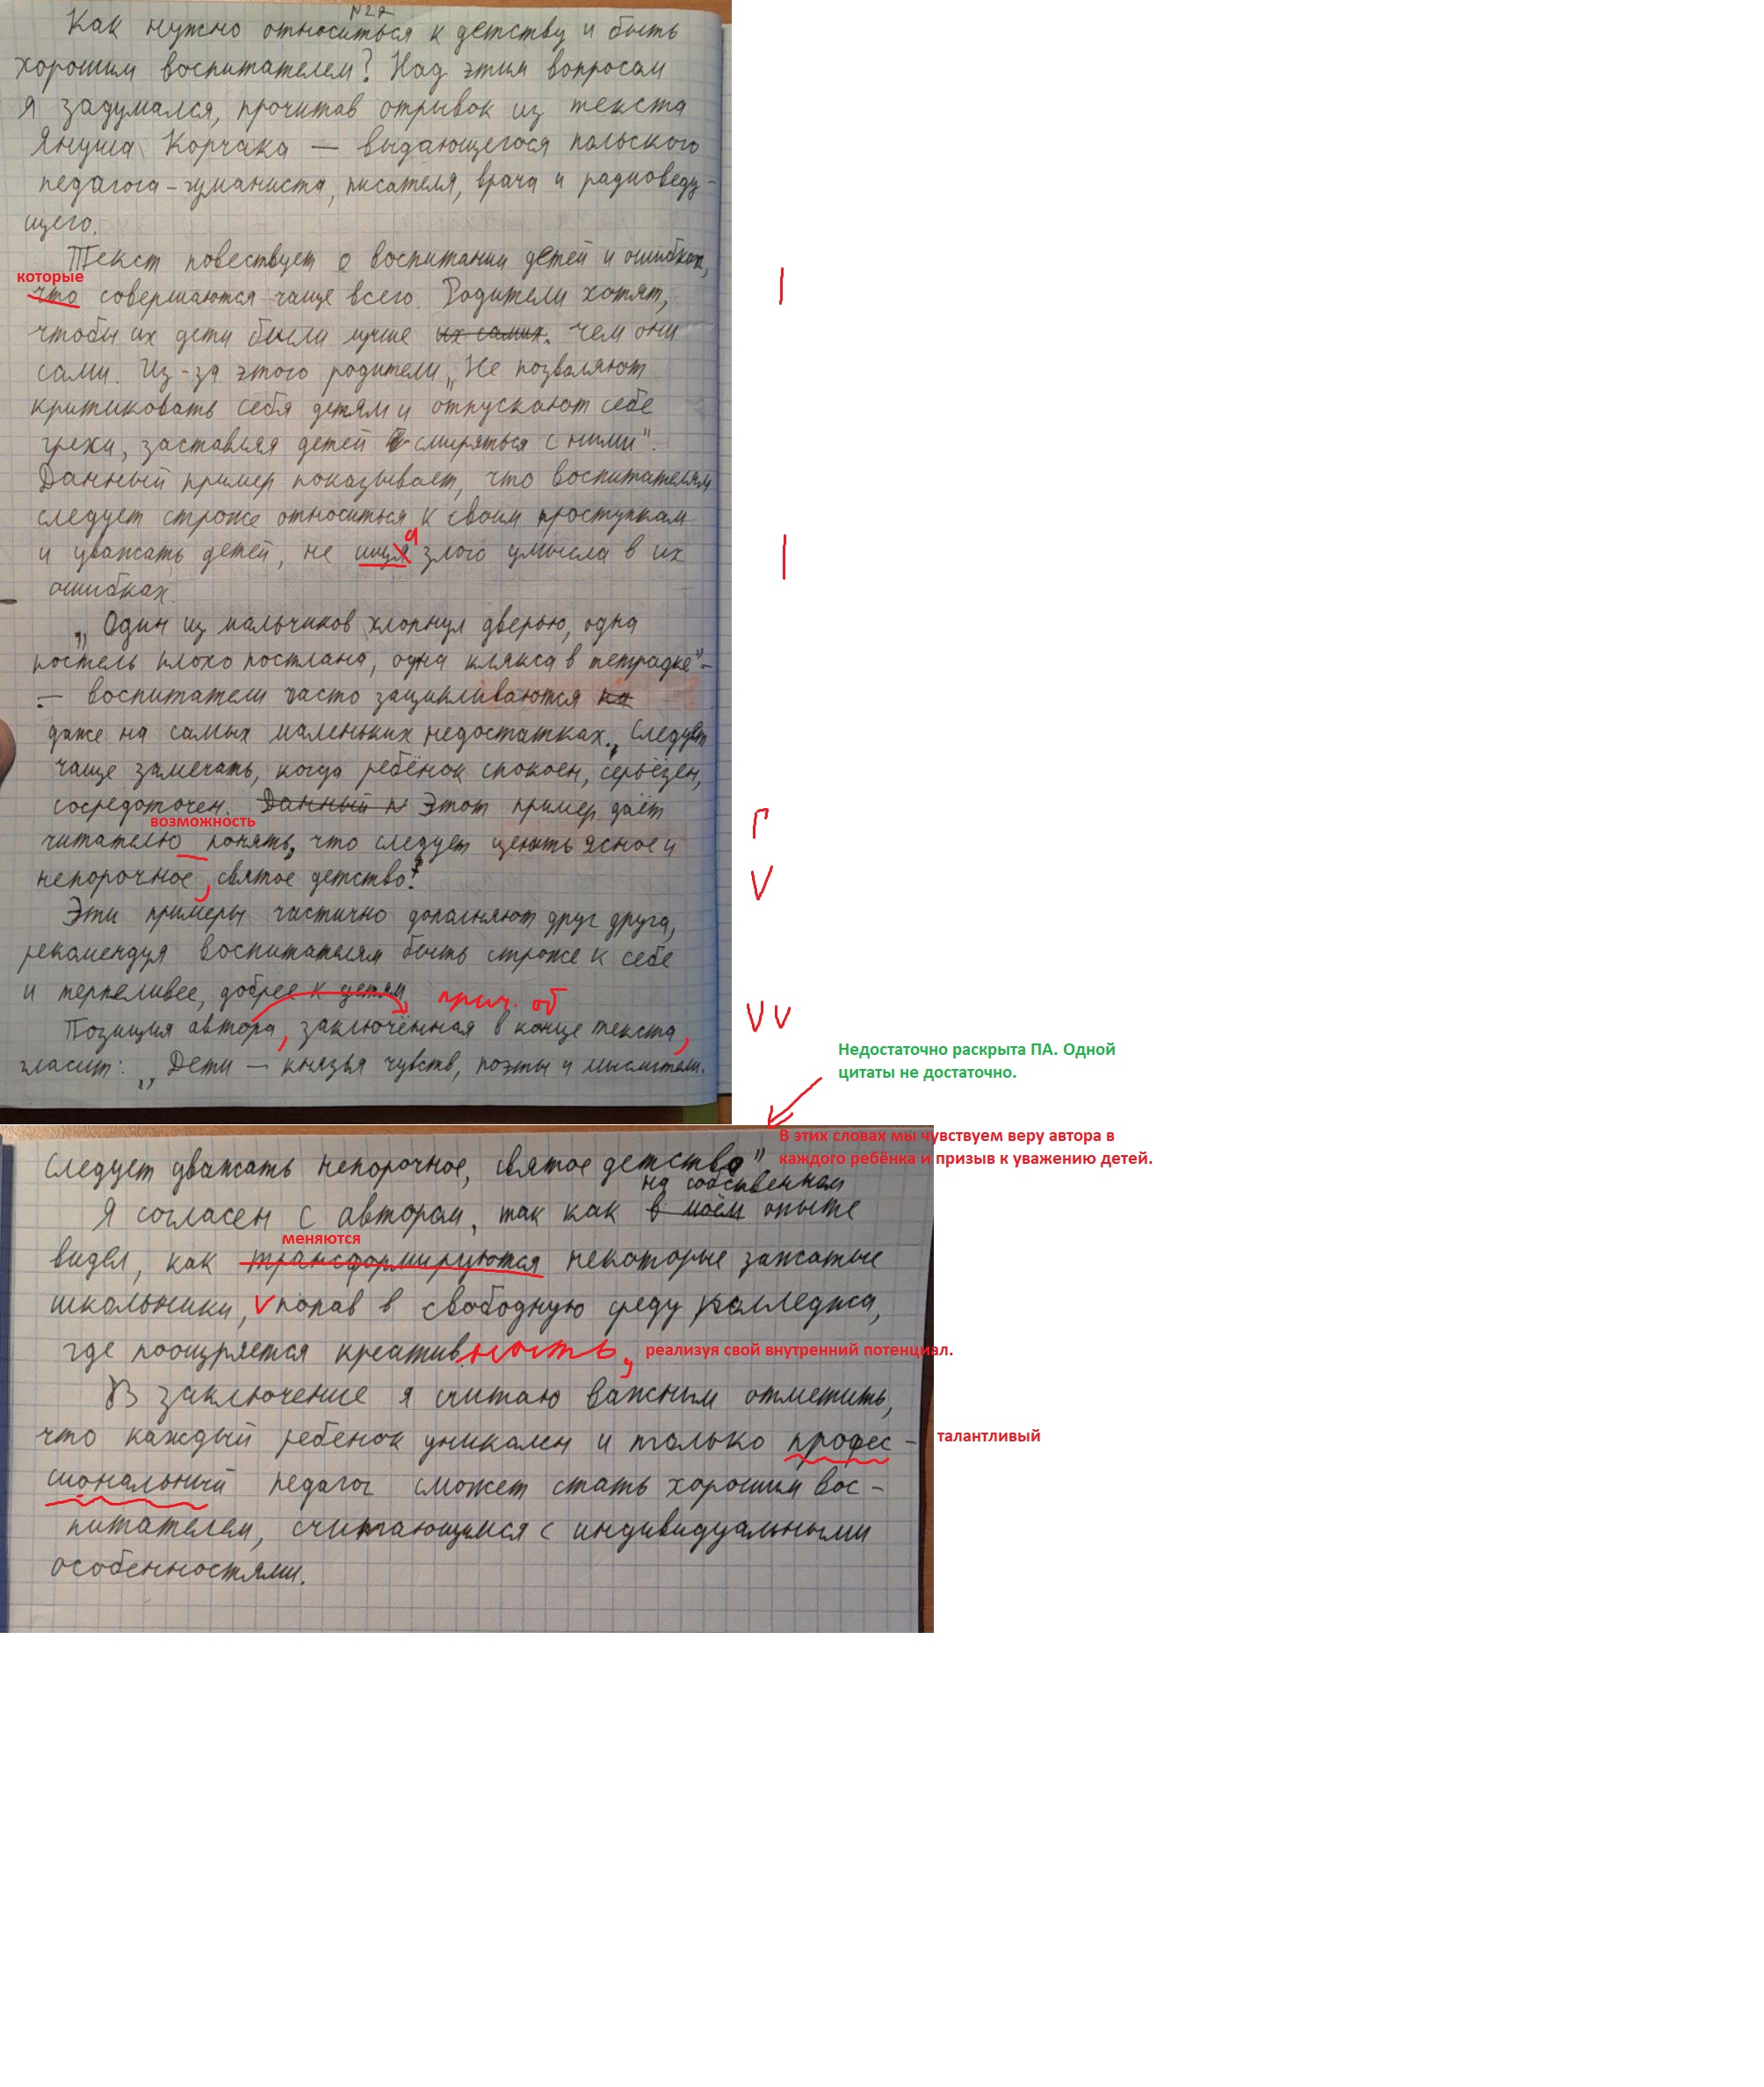 №27
Как нужно относиться к детству и быть
хорошим воспитателем? Над этим вопросом
я задумался, прочитав отрывок из текста
Януша Корчака — выдающегося польского
педагога-гуманиста, писателя, врача и радиоведу-
щего.
Текст повествует о воспитании детей и ошибках,
которые
что совершаются чаще всего. Родители хотят,
чтобы их дети были лучше их самих. чем они
сами. Из-за этого родители „Не позволяют
критиковать себя детям и отпускают себе
грехи, заставляя детей смиряться с ними".
Данный пример показывает, что воспитателям
следует строже относиться к своим проступкам
а
и уважать детей, не ища злого умысла в их
ошибках.
„Один из мальчиков хлопнул дверью, одна
постель плохо постлана, одна клякса в тетрадке"-
— воспитатели часто зацикливаются на
даже на самых маленьких недостатках. „Следует
чаще замечать, когда ребёнок спокоен, серьёзен,
сосредоточен. Данный п Этот пример даёт
возможность
читателю понять, что следует ценить ясное и
непорочное, святое детство!"
Эти примеры частично дополняют друг друга,
рекомендуя воспитателям быть строже к себе
и терпеливее, добрее к детям
прич. об
Позиция автора, заключённая в конце текста,
гласит: „Дети — князья чувств, поэты и мыслители.
Недостаточно раскрыта ПА. Одной
цитаты не достаточно.
Следует уважать непорочное, святое детство"
В этих словах мы чувствуем веру автора в
каждого ребёнка и призыв к уважению детей.
на собственном
Я согласен с автором, так как в моём опыте
меняются
видел, как трансформируются некоторые зажатые
школьники, попав в свободную среду колледжа,
где поощряется креативность, реализуя свой внутренний потенциал.
В заключение я считаю важным отметить,
что каждый ребенок уникален и только профес- талантливый
сиональный педагог сможет стать хорошим вос-
питателем, считающимся с индивидуальными
особенностями.